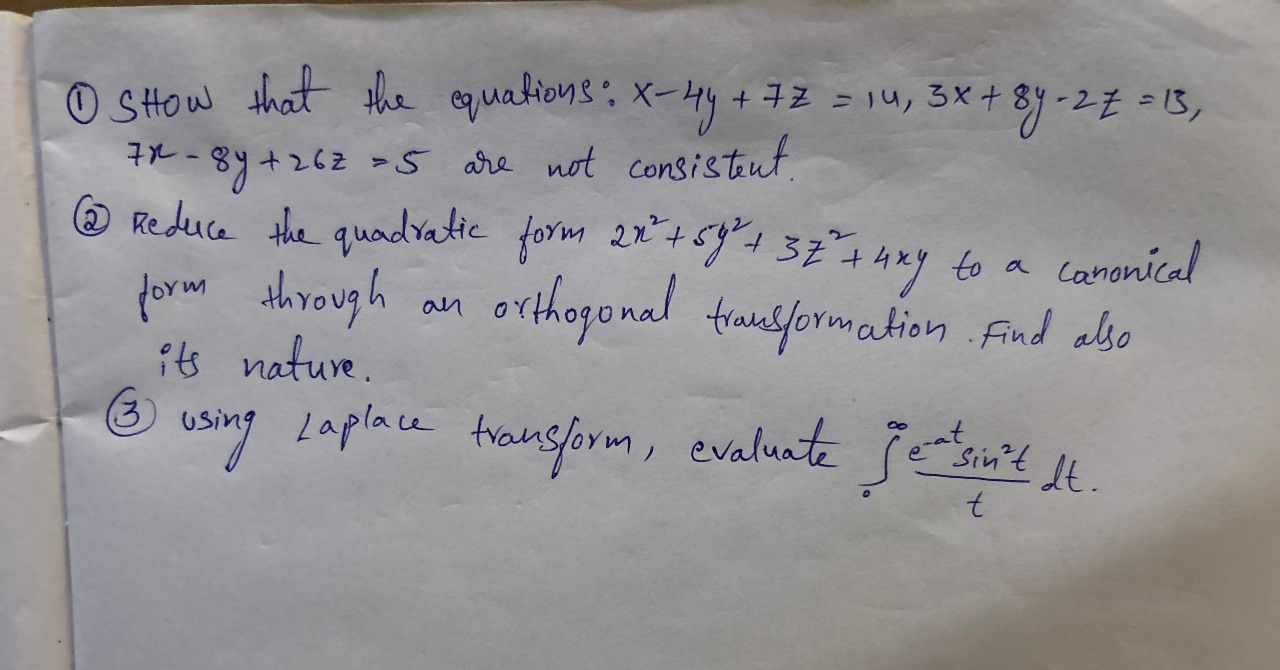 ① SHOW that the equations: x-4y+7z=14, 3x+8y-2z=13,
7x-8y+26z=5 are not consistent.
② Reduce the quadratic form 2x²+5y²+3z²+4xy to a canonical
form through an orthogonal transformation. Find also
its nature.
③ using Laplace transform, evaluate ∫₀^∞ (e^{-at} sin²t)/t dt.